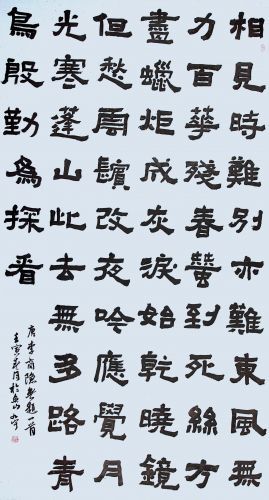 相見時難別亦難東風無
力百華殘春蠶到死絲方
盡蠟炬成灰淚始乾曉鏡
但愁雲鬢改夜吟應覺月
光寒蓬山此去無多路青
鳥殷勤為探看
唐李商隱無題一首
壬寅